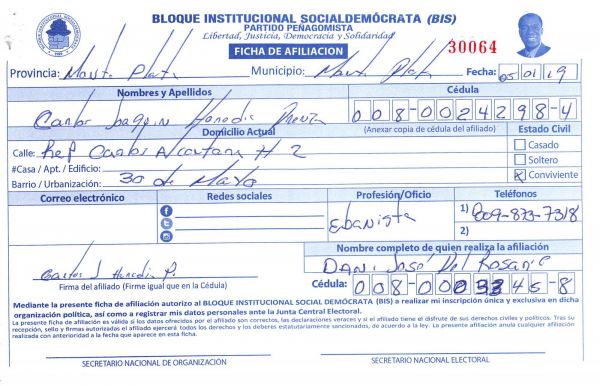 BLOQUE INSTITUCIONAL SOCIALDEMÓCRATA (BIS)
PARTIDO PEÑAGOMISTA
Libertad, Justicia, Democracia y Solidaridad
FICHA DE AFILIACION
30064
Provincia: Monte Plata Municipio: Monte Plata Fecha: 05 01 19
Nombres y Apellidos Cédula
Carlos Joaquin Heredia 008-0024298-4
Domicilio Actual (Anexar copia de cédula del afiliado) Estado Civil
Calle: Ref Carlos Alcantara # 2
Casado
#Casa / Apt. / Edificio:
Soltero
Barrio / Urbanización: 30 de Mayo
Conviviente
Correo electrónico Redes sociales Profesión/Oficio Teléfonos
Ebanista
1) 809-873-7318
2)
Nombre completo de quien realiza la afiliación
Carlos J Heredia P.
Dani José Del Rosario
Firma del afiliado (Firme igual que en la Cédula)
Cédula: 008-0033345-8
Mediante la presente ficha de afiliación autorizo al BLOQUE INSTITUCIONAL SOCIAL DEMÓCRATA (BIS) a realizar mi inscripción única y exclusiva en dicha
organización política, así como a registrar mis datos personales ante la Junta Central Electoral.
La presente ficha de afiliación es válida si los datos ofrecidos por el afiliado son correctos, las declaraciones veraces y si el afiliado tiene el disfrute de sus derechos civiles y políticos. Tras su
recepción, sello y firmas autorizadas el afiliado ejercerá todos los derechos y los deberes estatutariamente sancionados, de acuerdo a la ley. La presente afiliación anula cualquier afiliación
realizada con anterioridad a la fecha que aparece en esta ficha.
SECRETARIO NACIONAL DE ORGANIZACIÓN
SECRETARIO NACIONAL ELECTORAL